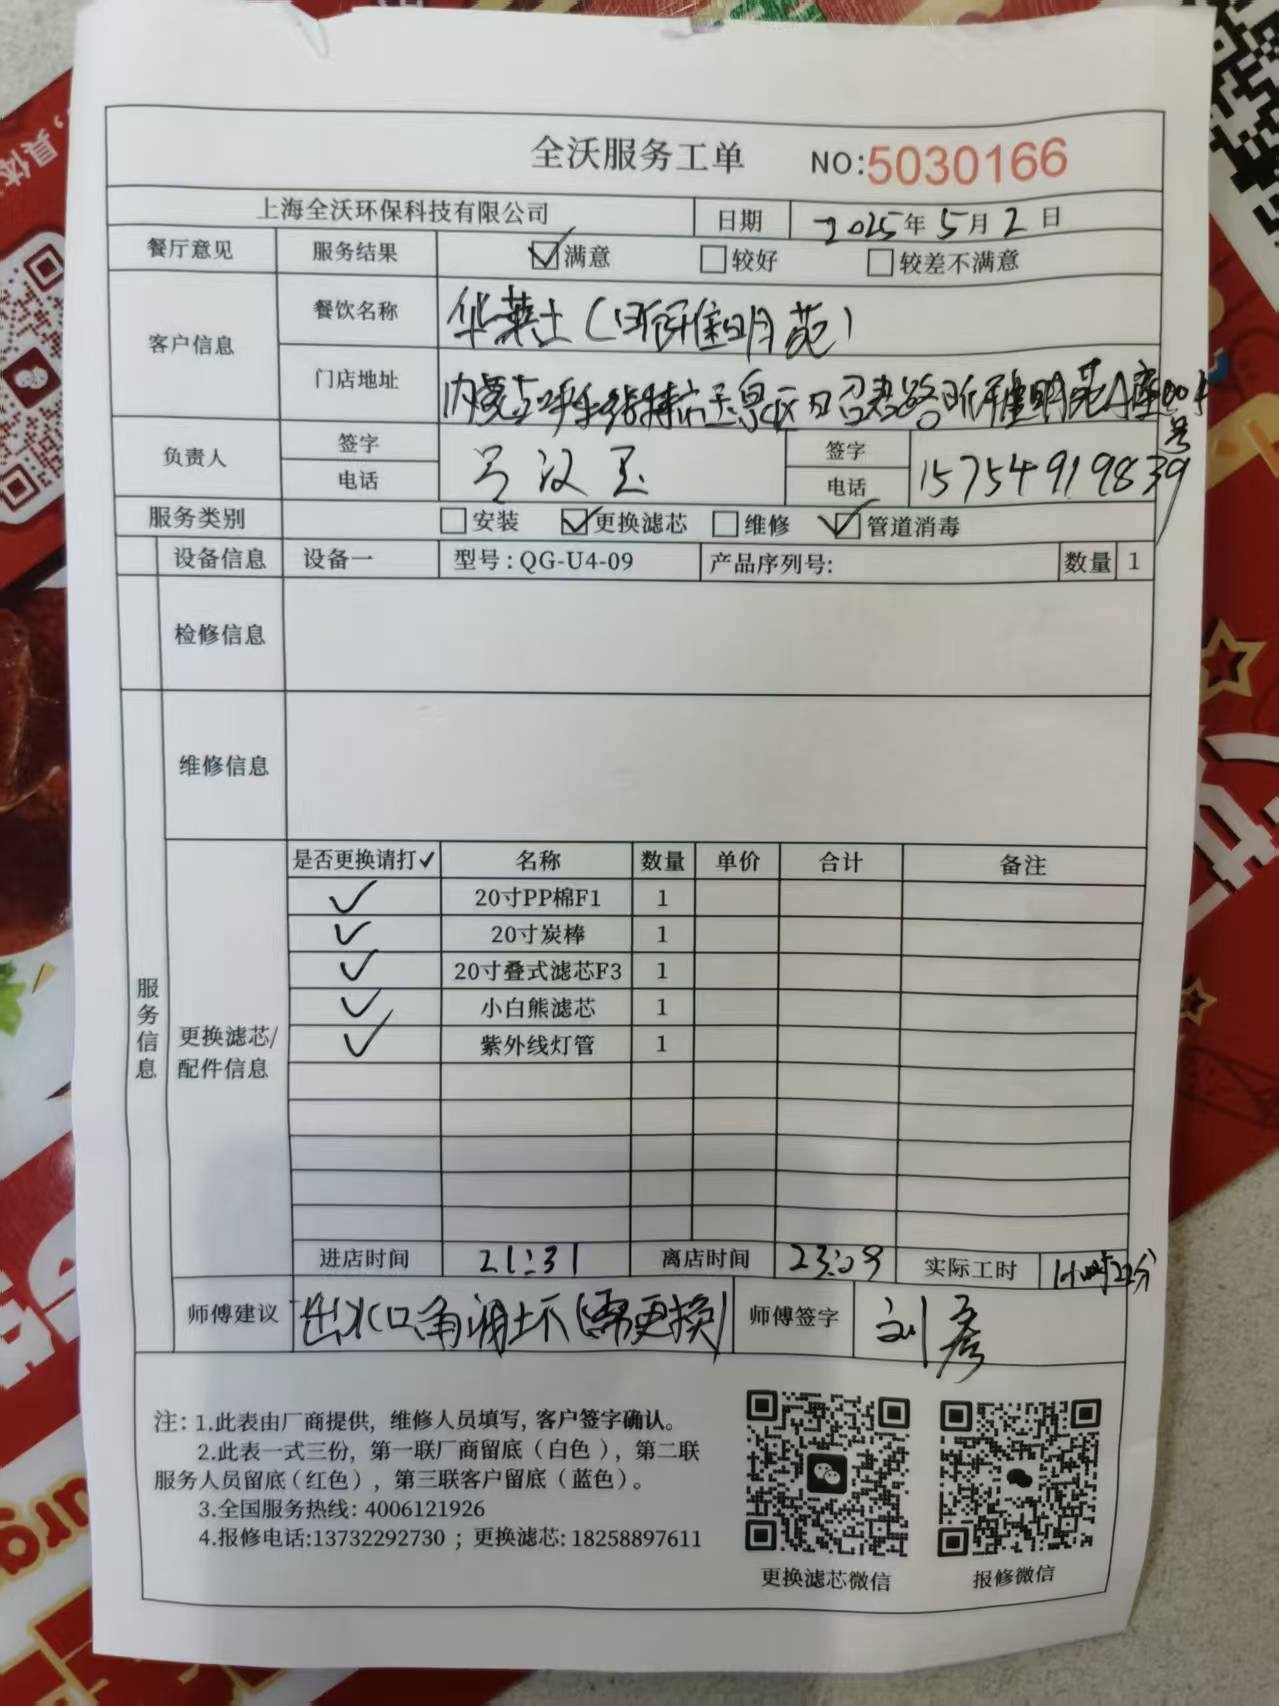 全沃服务工单 NO:5030166
上海全沃环保科技有限公司 日期 2025年5月2日
餐厅意见 服务结果 ☑满意 □较好 □较差不满意
客户信息 餐饮名称 华莱士(昭君佳明苑)
门店地址 内蒙古呼和浩特市玉泉区昭君路 A座
号
负责人 签字 吕汉玉 签字
电话 电话 15754919839
服务类别 □安装 ☑更换滤芯 □维修 ☑管道消毒
设备信息 设备一 型号:QG-U4-09 产品序列号: 数量 1
检修信息
维修信息
服务信息
更换滤芯/
配件信息
是否更换请打✓ 名称 数量 单价 合计 备注
✓ 20寸PP棉F1 1
✓ 20寸炭棒 1
✓ 20寸叠式滤芯F3 1
✓ 小白熊滤芯 1
✓ 紫外线灯管 1
进店时间 21:31 离店时间 23:09 实际工时 1小时22分
师傅建议 出水口角阀坏(需更换) 师傅签字 刘彦
注: 1.此表由厂商提供, 维修人员填写, 客户签字确认。
2.此表一式三份, 第一联厂商留底(白色), 第二联
服务人员留底(红色), 第三联客户留底(蓝色)。
3.全国服务热线: 4006121926
4.报修电话:13732292730 ; 更换滤芯: 18258897611
更换滤芯微信 报修微信
具体